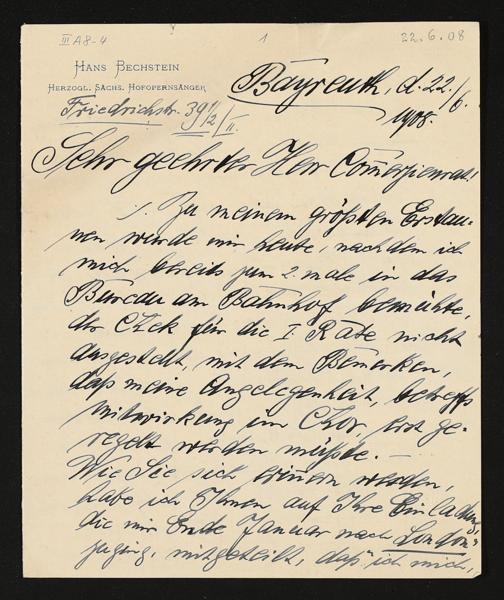 III A 8-4
1
22.6.08
HANS BECHSTEIN
HERZOGL. SÄCHS. HOFOPERNSÄNGER
Friedrichstr. 39 1/2/II.
Bayreuth, d. 22./6.
1908.
Sehr geehrter Herr Commerzienrat!
Zu meinem größten Erstau-
nen wurde mir heute, nachdem ich
mich bereits zum 2. male in das
Bureau am Bahnhof bemühte,
der Check für die I. Rate nicht
ausgestellt, mit dem Bemerken,
daß meine Angelegenheit, betreffs
Mitwirkung im Chor, erst ge-
regelt werden müßte. —
Wie Sie sich erinnern werden,
habe ich Ihnen auf Ihre Einladung,
die mir Ende Januar nach London
zuging, mitgeteilt, daß ich mich,